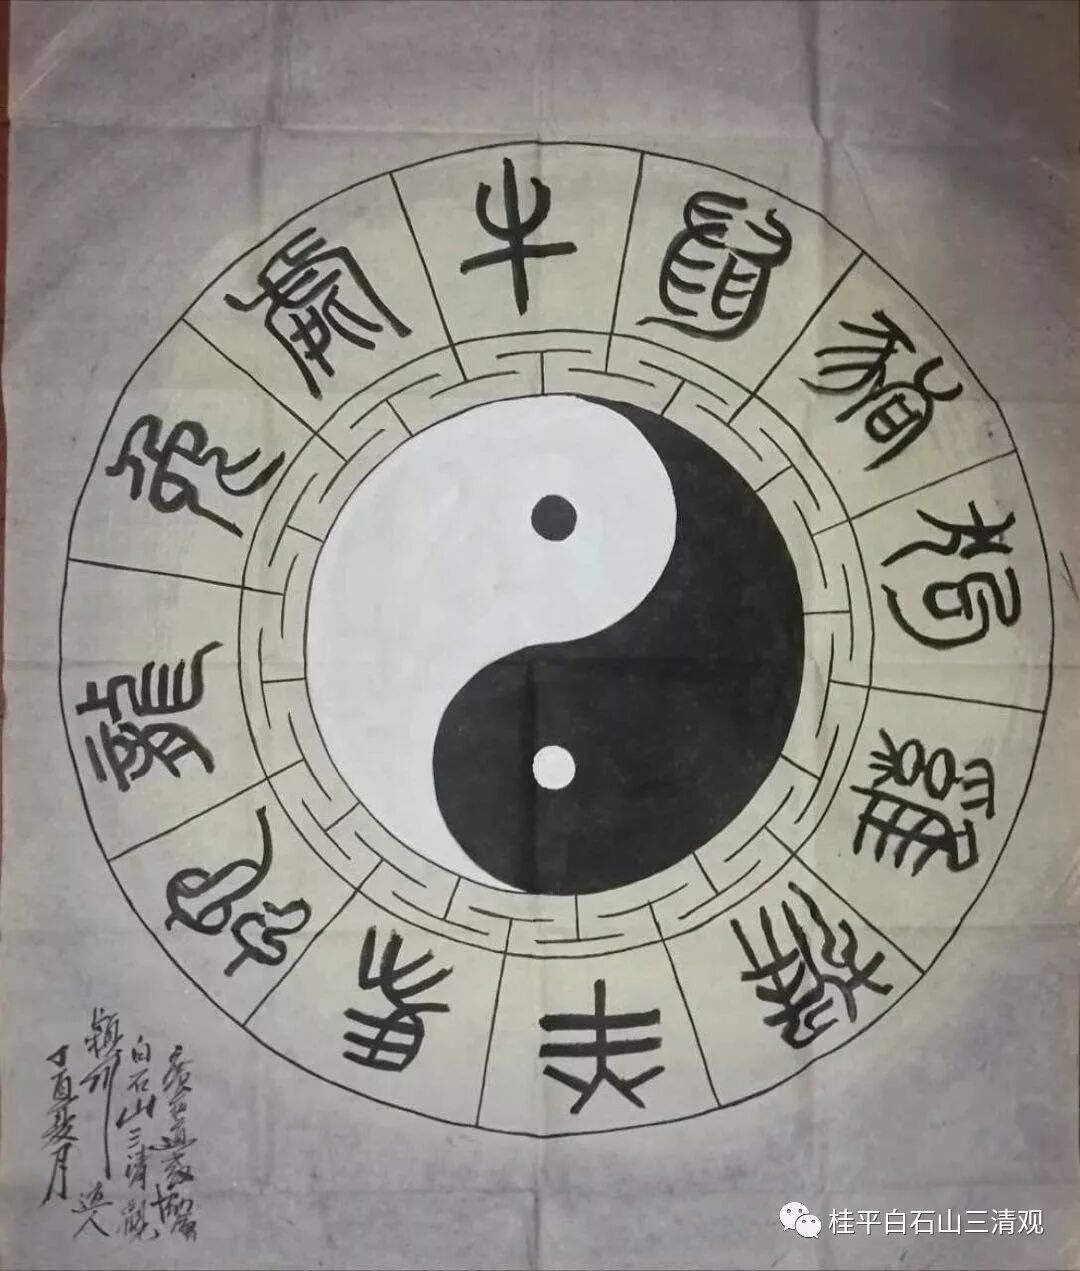 鼠
牛
虎
兔
龍
蛇
馬
羊
猴
雞
狗
豬
道教協會
白石山三清觀
道人
丁酉夏月
桂平白石山三清观